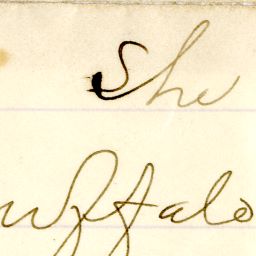 She
uffalo